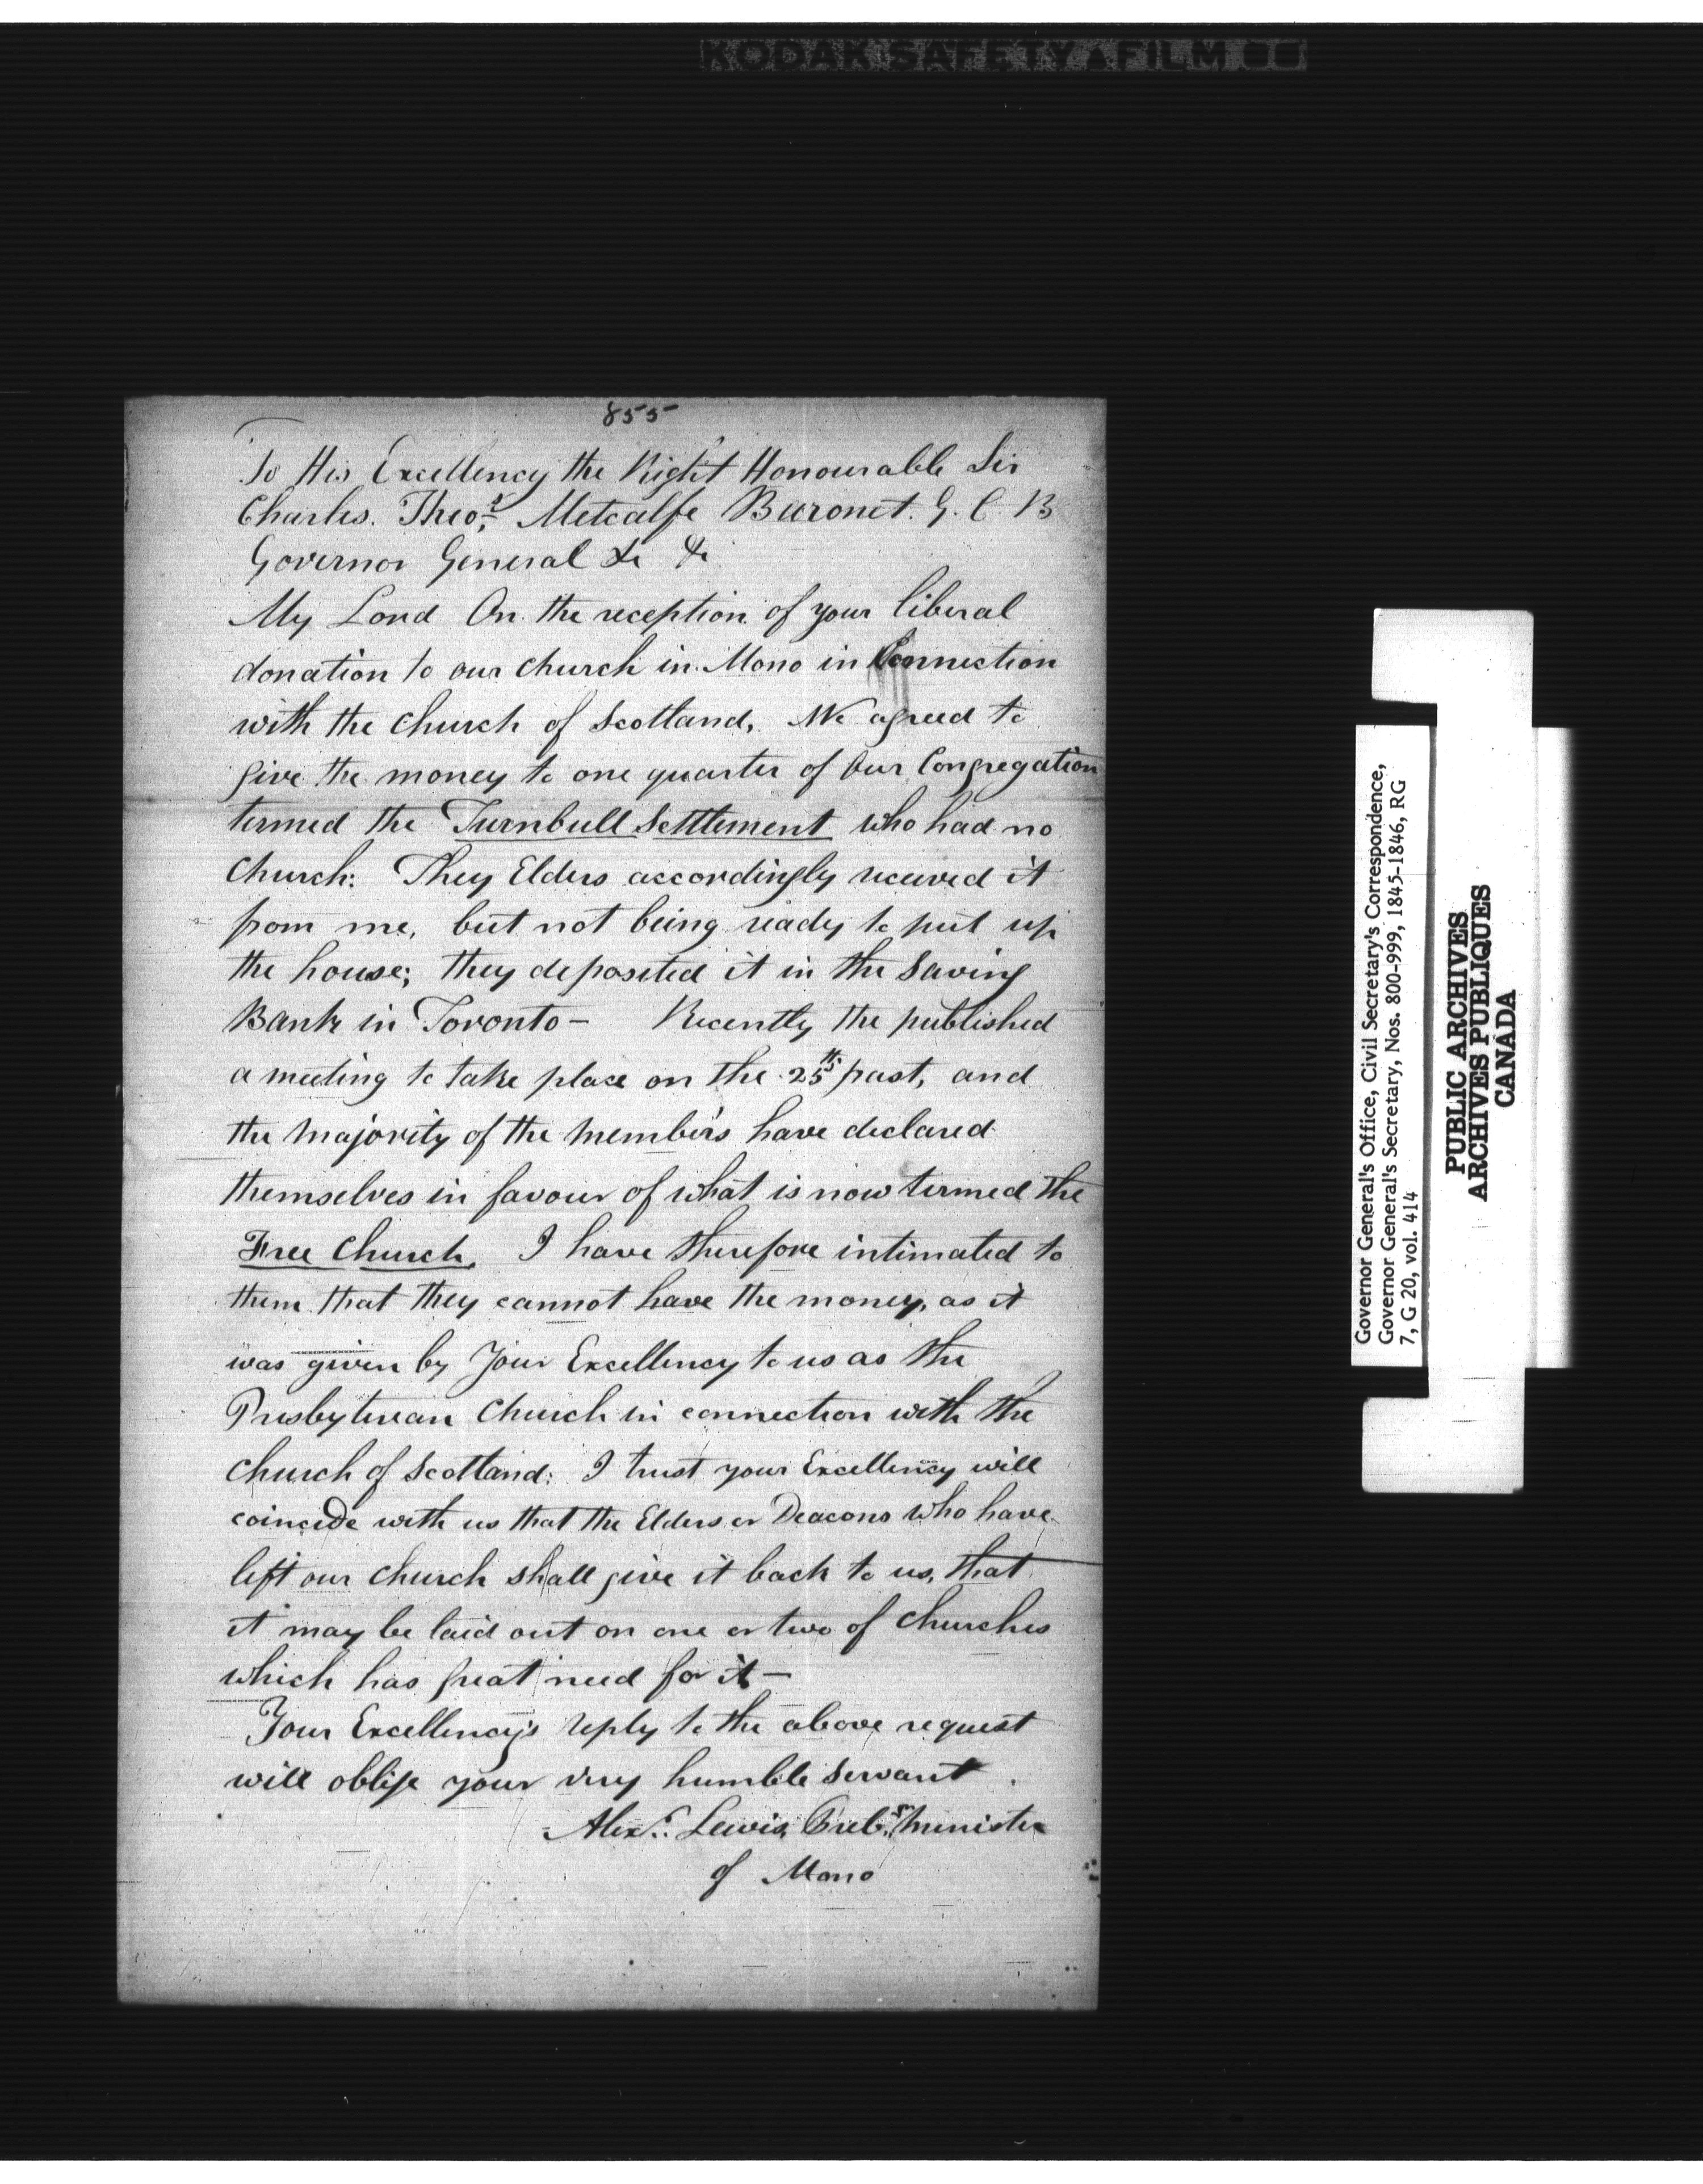 KODAK SAFETY FILM
855
To His Excellency the Right Honourable Sir
Charles. Theos. Metcalfe Baronet. G. C B
Governor General &c &c
My Lord On the reception of your liberal
donation to our church in Mono in Connection
with the church of Scotland, We agreed to
give the money to one quarter of Our Congregation
termed the Turnbull Settlement who had no
Church: They Elders accordingly received it
from me, but not being ready to put up
the house; they deposited it in the Saving
Bank in Toronto — Recently the published
a meeting to take place on the 25th past, and
the majority of the members have declared
themselves in favour of what is now termed the
Free Church. I have therefore intimated to
them that they cannot have the money, as it
was given by Your Excellency to us as the
Presbyterean Church in connection with the
Church of Scotland: I trust your Excellency will
coincide with us that the Elders or Deacons who have
left our church shall give it back to us, that
it may be laid out on one or two of Churches
which has great need for it —
Your Excellency's reply to the above request
will oblige your very humble Servant.
Alexr. Lewis, Presbn. Minister
of Mono
Governor General's Office, Civil Secretary's Correspondence,
Governor General's Secretary, Nos. 800-999, 1845-1846, RG
7, G 20, vol. 414
PUBLIC ARCHIVES
ARCHIVES PUBLIQUES
CANADA